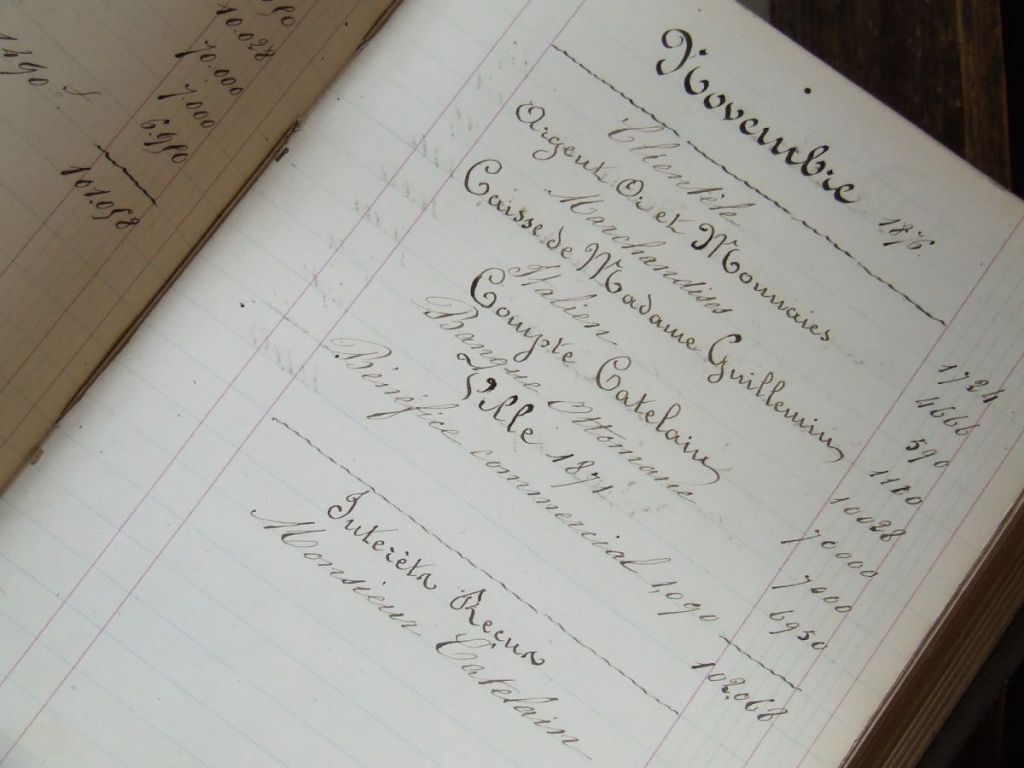 10.028
70.000
7.000
6.950
101.058
Novembre 1876.
Clientèle 1724
Argent Or et Monnaies 4666
Marchandises 590
Caisse de Madame Guillemin 1110
Italien 10028
Compte Catelain 70000
Banque Ottomane 7000
Ville 1871 6950
Bénéfice commercial 1,090 102.068
Intérêts Reçus
Monsieur Catelain